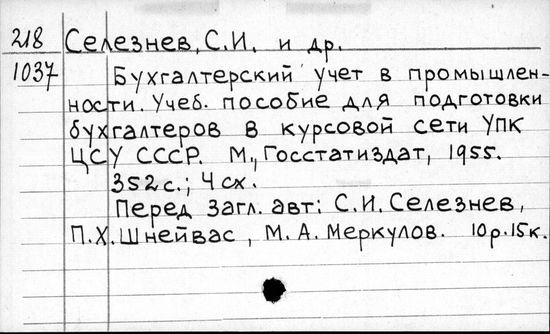 218 Селезнев, С.И. и др.
1037 Бухгалтерский учет в промышлен-
ности. Учеб. пособие для подготовки
бухгалтеров в курсовой сети УПК
ЦСУ СССР. М., Госстатиздат, 1955.
352 с.; 4 сх.
Перед загл. авт: С.И. Селезнев,
П.Х. Шнейвас, М.А. Меркулов. 10 р. 15 к.